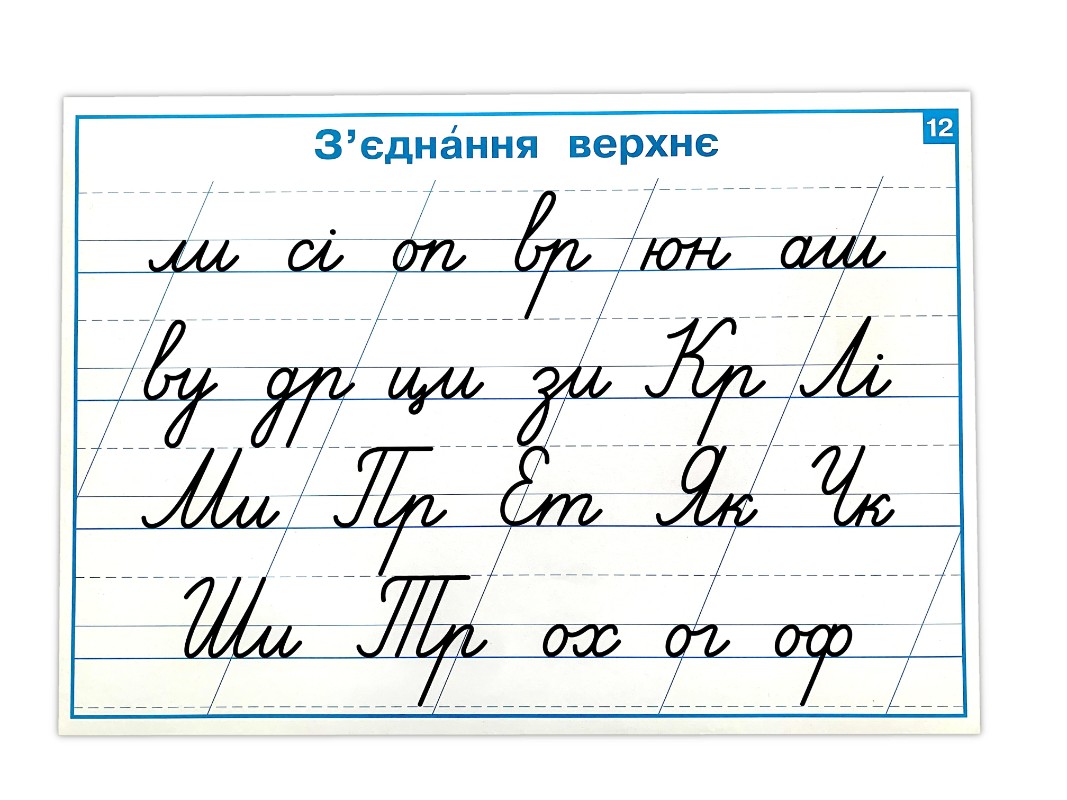 12
З’єдна́ння верхнє
ли сі оп вр юн аш
ву др ци зи Кр Лі
Ми Пр Ет Як Чк
Ши Тр ох ог оф